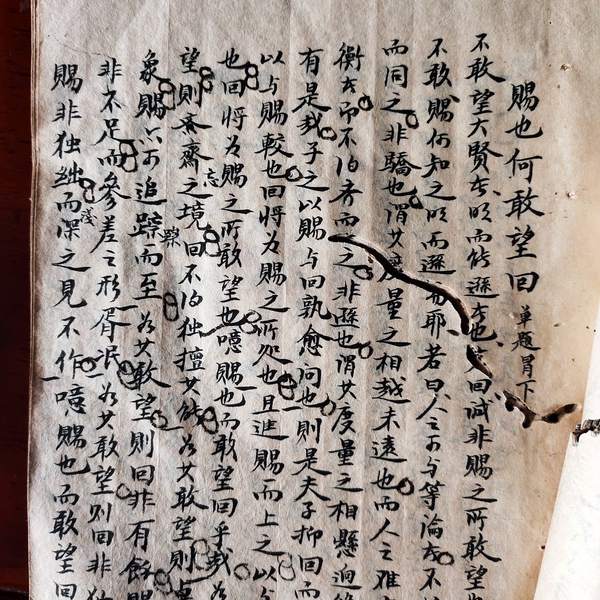 賜也何敢望回 單題冒下
不敢望大賢者明而能遜者也夫回誠非賜之所敢望
不敢賜何知之明而遜耶若曰人之可与等倫者不
而同之非驕也謂其度量之相越未遠也而人之难
衡者而不怕齐而之非遜也謂其度量之相懸迥
有是哉子之以賜与回孰愈问也則是夫子抑回而
以与賜較也回将为賜之所怨也且進賜而上之以
也回将为賜之所敢望也噫賜也而敢望回乎哉
望則亲齋之忘境回不怕独擅其能为其敢望則
象賜亦可追蹤而至为其敢望則回非有餘賜
非不足而參差之形胥泯为其敢望則回非独
賜非独絀而深淺之見不作噫賜也而敢望回